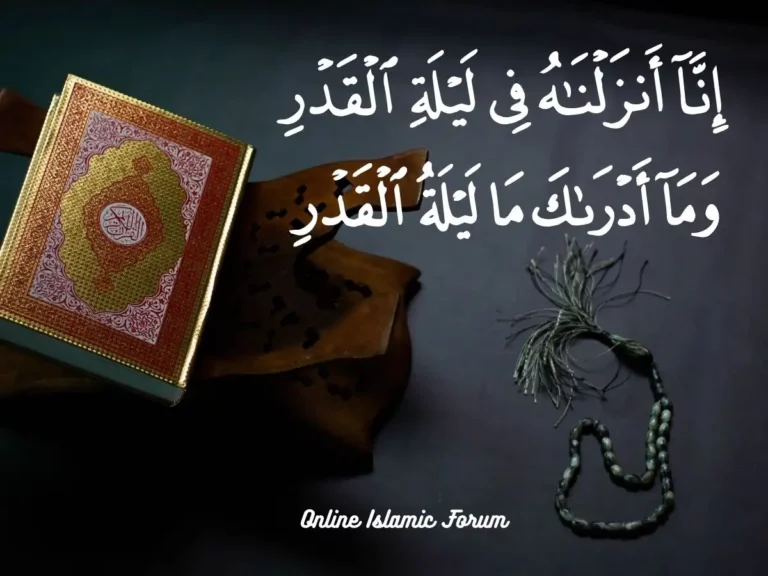 إِنَّآ أَنزَلْنَـٰهُ فِى لَيْلَةِ ٱلْقَدْرِ
وَمَآ أَدْرَىٰكَ مَا لَيْلَةُ ٱلْقَدْرِ
Online Islamic Forum